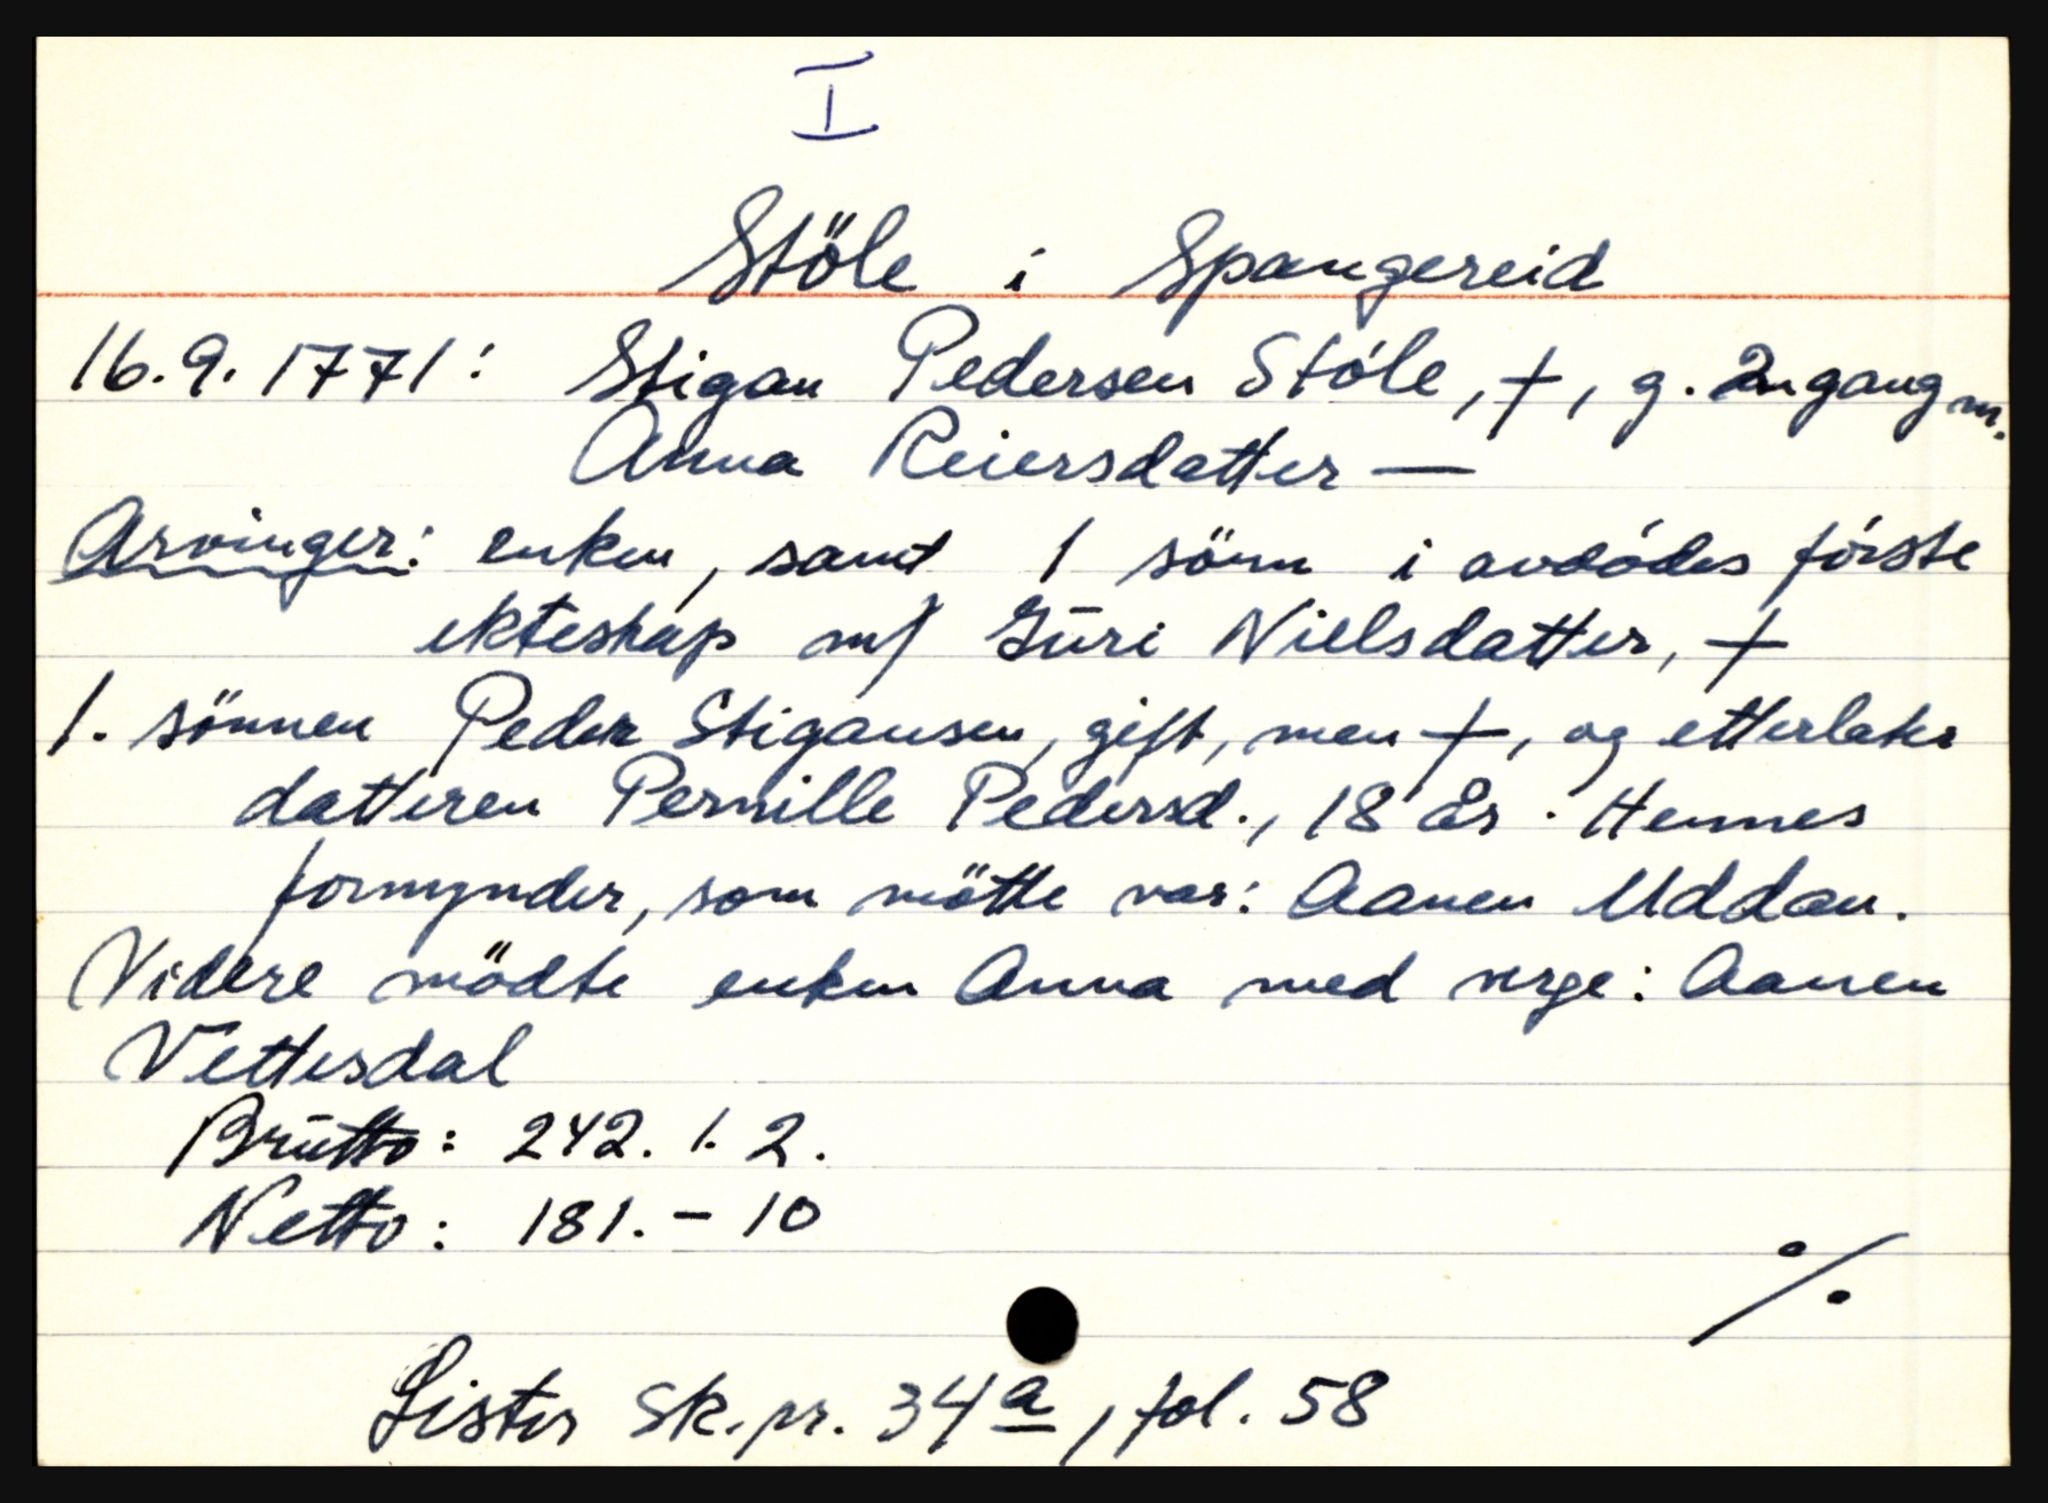 I
Stöle i Spangereid
16.9.1771: Stigan Pedersen Stóle, †, g. 2n gang m.
Anna Reiersdatter —
Arvinger: enken, samt 1 sönn i avdódes fórste
ekteskap m/ Gūri Nielsdatter, †
1. sönnen Peder Stigansen, gift, men †, og etterlater
datteren Pernille Pedersd., 18 år. Hennes
formynder, som mötte var: Aanen Uddan.
Videre mödte enken Anna med verge: Aanen
Vettesdal
Brūtto: 242. 1. 2.
Netto: 181. – 10
·/.
Lister Sk.pr. 34 a, fol. 58